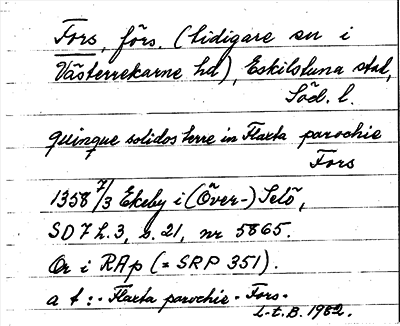 Fors, förs. (tidigare sn i
Västerrekarne hd), Eskilstuna stad,
Söd. l.
quinque solidos terre in Flaxta parochie
Fors
1358 7/3 Ekeby i (Över-) Selö,
SD 7 h. 3, s. 21, nr 5865.
Or i RAp (= SRP 351).
a t : · Flaxta parochie · Fors ·
L-t. B. 1962.